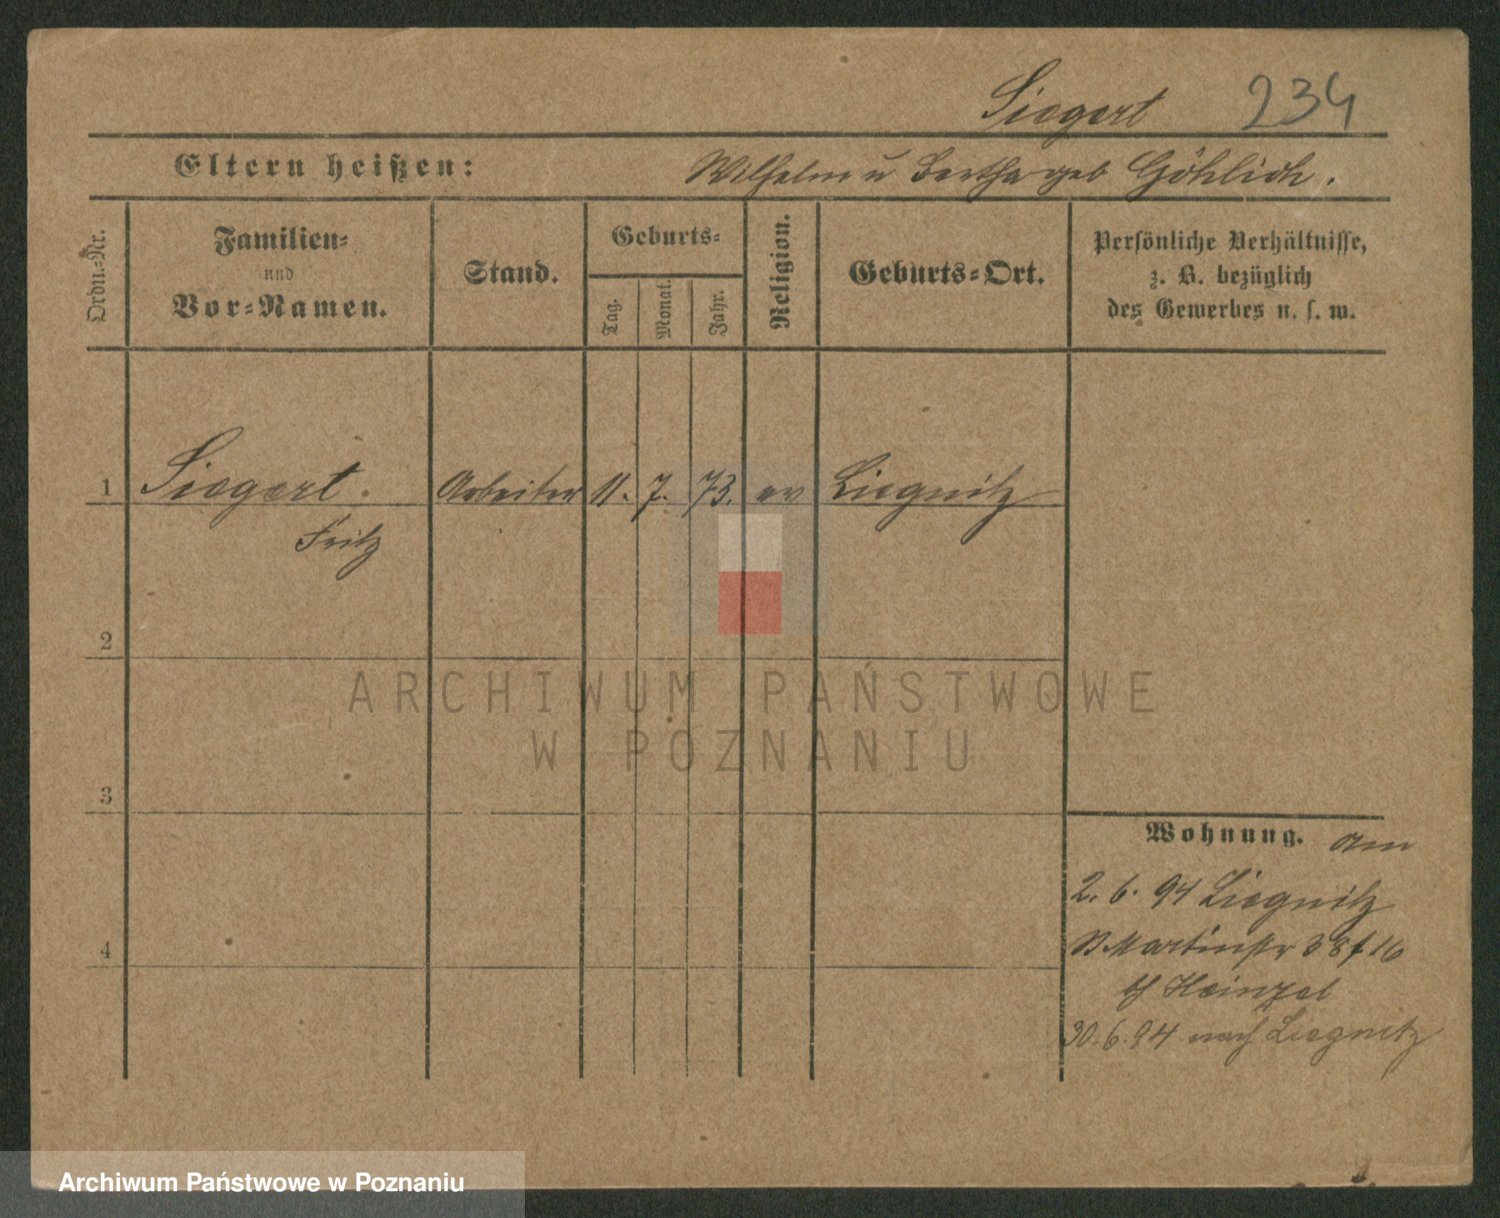 Siegert 234
Eltern heißen: Wilhelm u Bertha geb Göhlich.
Ordn.-Nr.
Familien-
und
Vor-Namen.
Stand.
Geburts-
Tag.
Monat.
Jahr.
Religion.
Geburts-Ort.
Persönliche Verhältnisse,
z. B. bezüglich
des Gewerbes u. s. w.
1 Siegert. Arbeiter 11. 7. 73. ev Liegnitz
Fritz
2
3
4
Wohnung. am
2. 6. 94 Liegnitz
Martinstr 38
bei Heinzel
30. 6. 94 nach Liegnitz
ARCHIWUM PAŃSTWOWE
W POZNANIU
Archiwum Państwowe w Poznaniu